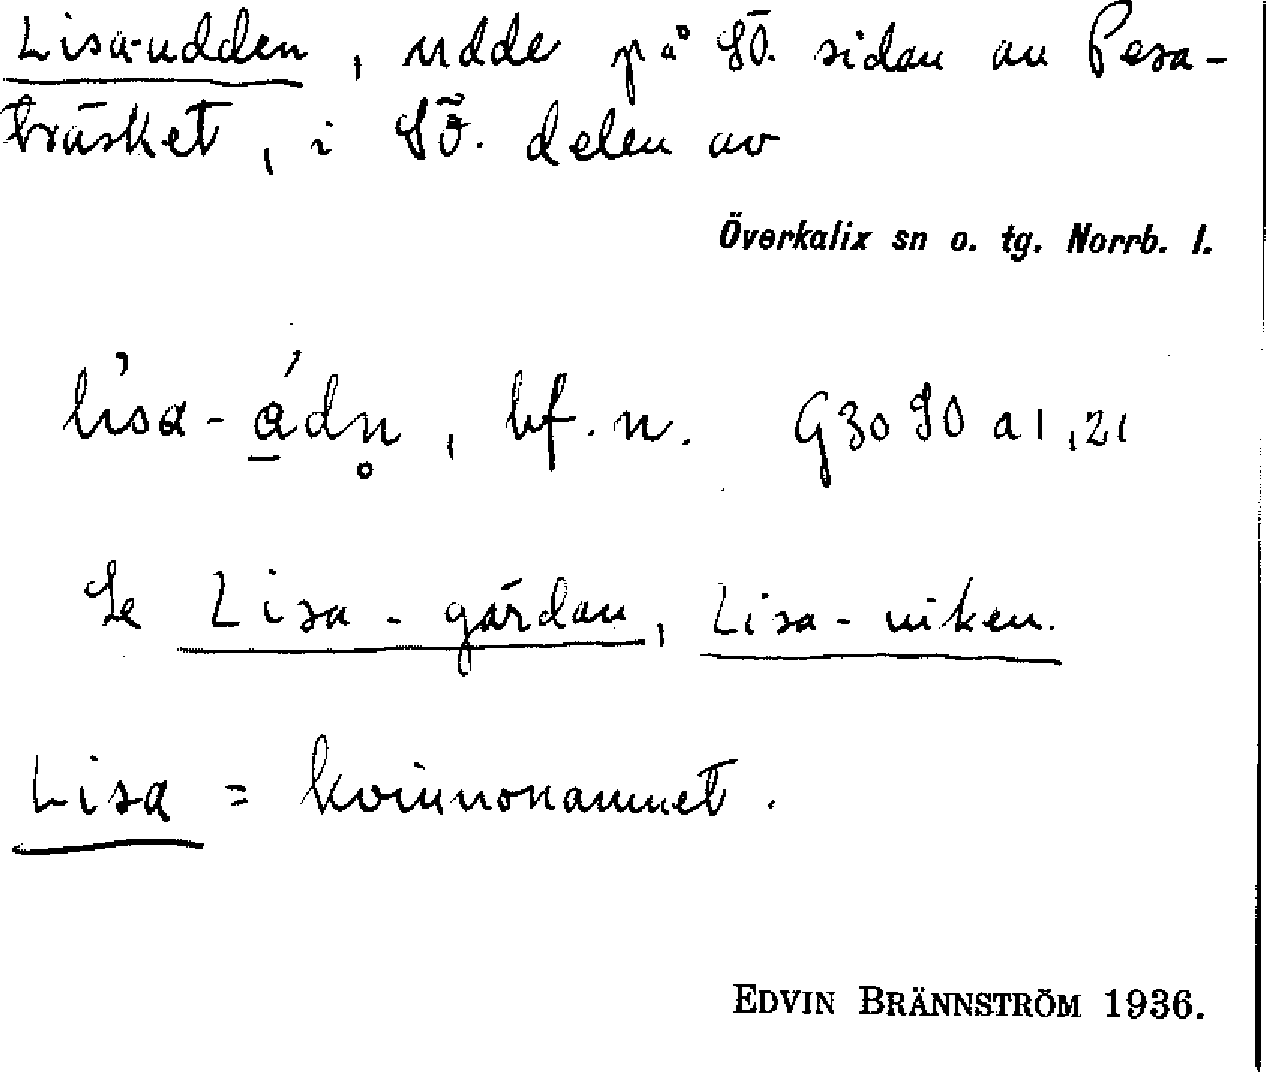 Lisa-udden, udde på SÖ. sidan av Pesa-
träsket, i SÖ. delen av
Överkalix sn o. tg. Norrb. l.
lisa-ádn̥, bf. n. G30 SO a1,21
Se Lisa-gärdan, Lisa-viken.
Lisa = kvinnonamnet.
EDVIN BRÄNNSTRÖM 1936.